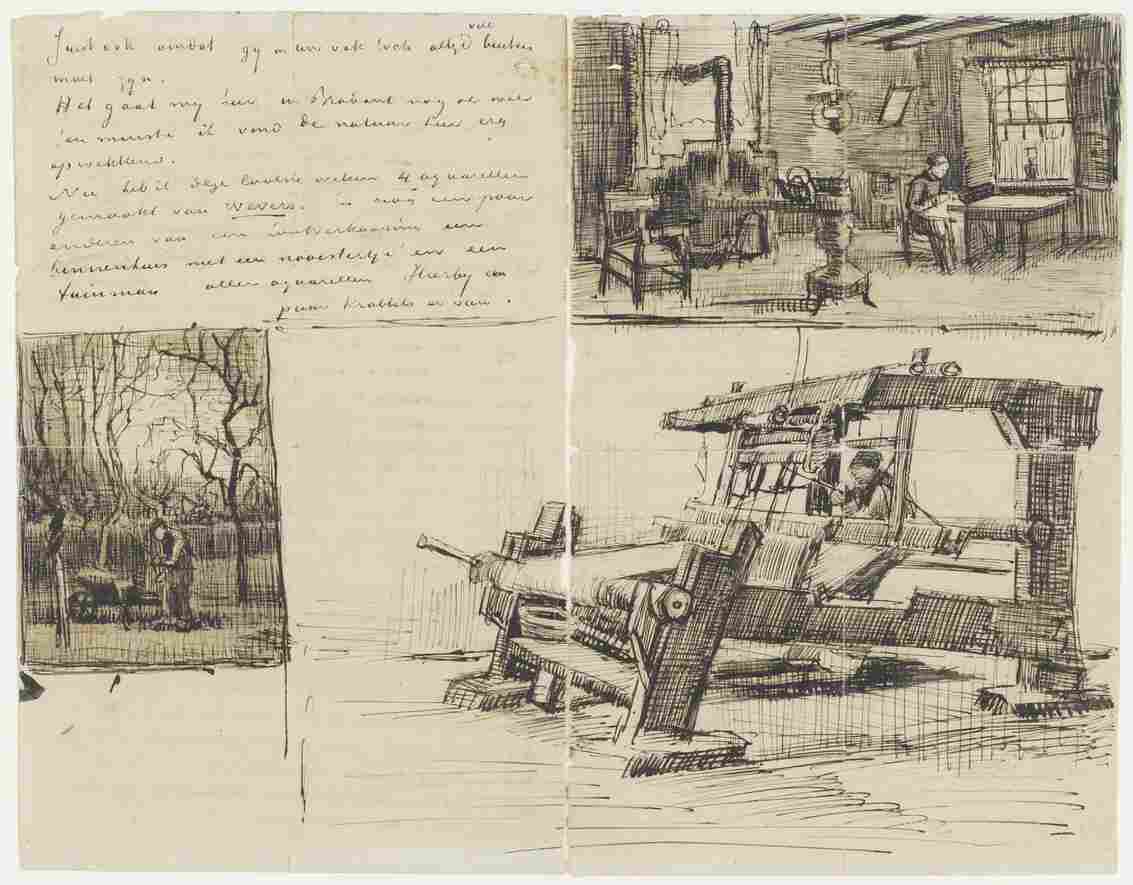 Juist ook omdat gij in uw vak toch altijd veel buiten
moet zijn.
Het gaat mij hier in Brabant nog al mee
ten minste ik vind de natuur hier erg
opwekkend.
Nu heb ik deze laatste weken 4 aquarellen
gemaakt van wevers. en nog een paar
anderen van een houtverkooping een
binnenhuis met een naaistertje en een
tuinman allen aquarellen Hierby een
paar krabbels er van.